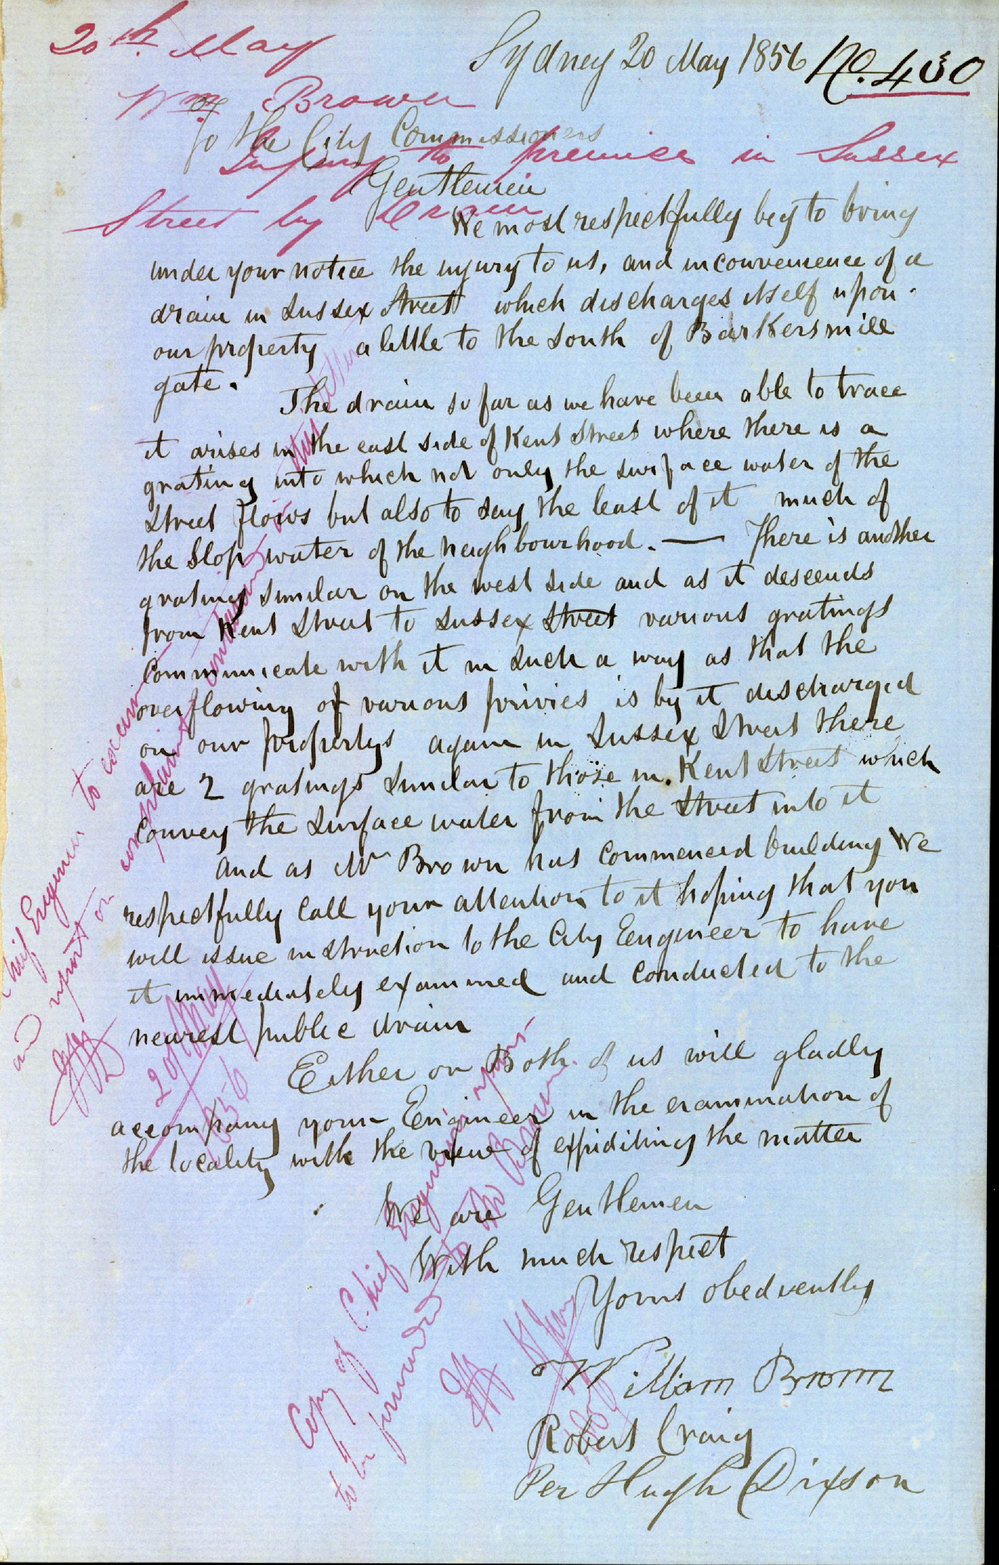 20th May
Sydney 20 May 1856 No. 430
Wm Brown
To the City Commissioners
Injury to premises in Sussex
Gentlemen
Street by Drain
We most respectfully beg to bring
under your notice the injury to us, and inconvenience of a
drain in Sussex Street which discharges itself upon
our property a little to the South of Barkers mill
gate.
The drain so far as we have been able to trace
it arises in the east side of Kent Street where there is a
grating into which not only the surface water of the
Street flows but also to say the least of it much of
the Slop water of the neighbourhood. — There is another
grating similar on the west side and as it descends
from Kent Street to Sussex Street various gratings
Communicate with it in such a way as that the
overflowing of various privies is by it discharged
on our propertys again in Sussex Street there
are 2 gratings similar to those in Kent Street which
convey the surface water from the Street into it
And as Mr Brown has commenced building We
respectfully call your attention to it hoping that you
will issue instruction to the City Engineer to have
it immediately examined and conducted to the
nearest public drain
Either or Both of us will gladly
accompany your Engineer in the examination of
the locality with the view of expiditing the matter
We are Gentlemen
With much respect
Yours obediently
William Brown
Robert Craig
Per Hugh Dixson
Chief Engineer to
and report on complaint contained in this letter
20 May
1856
Copy of Chief Engineers report
to be forwarded to Mr Brown